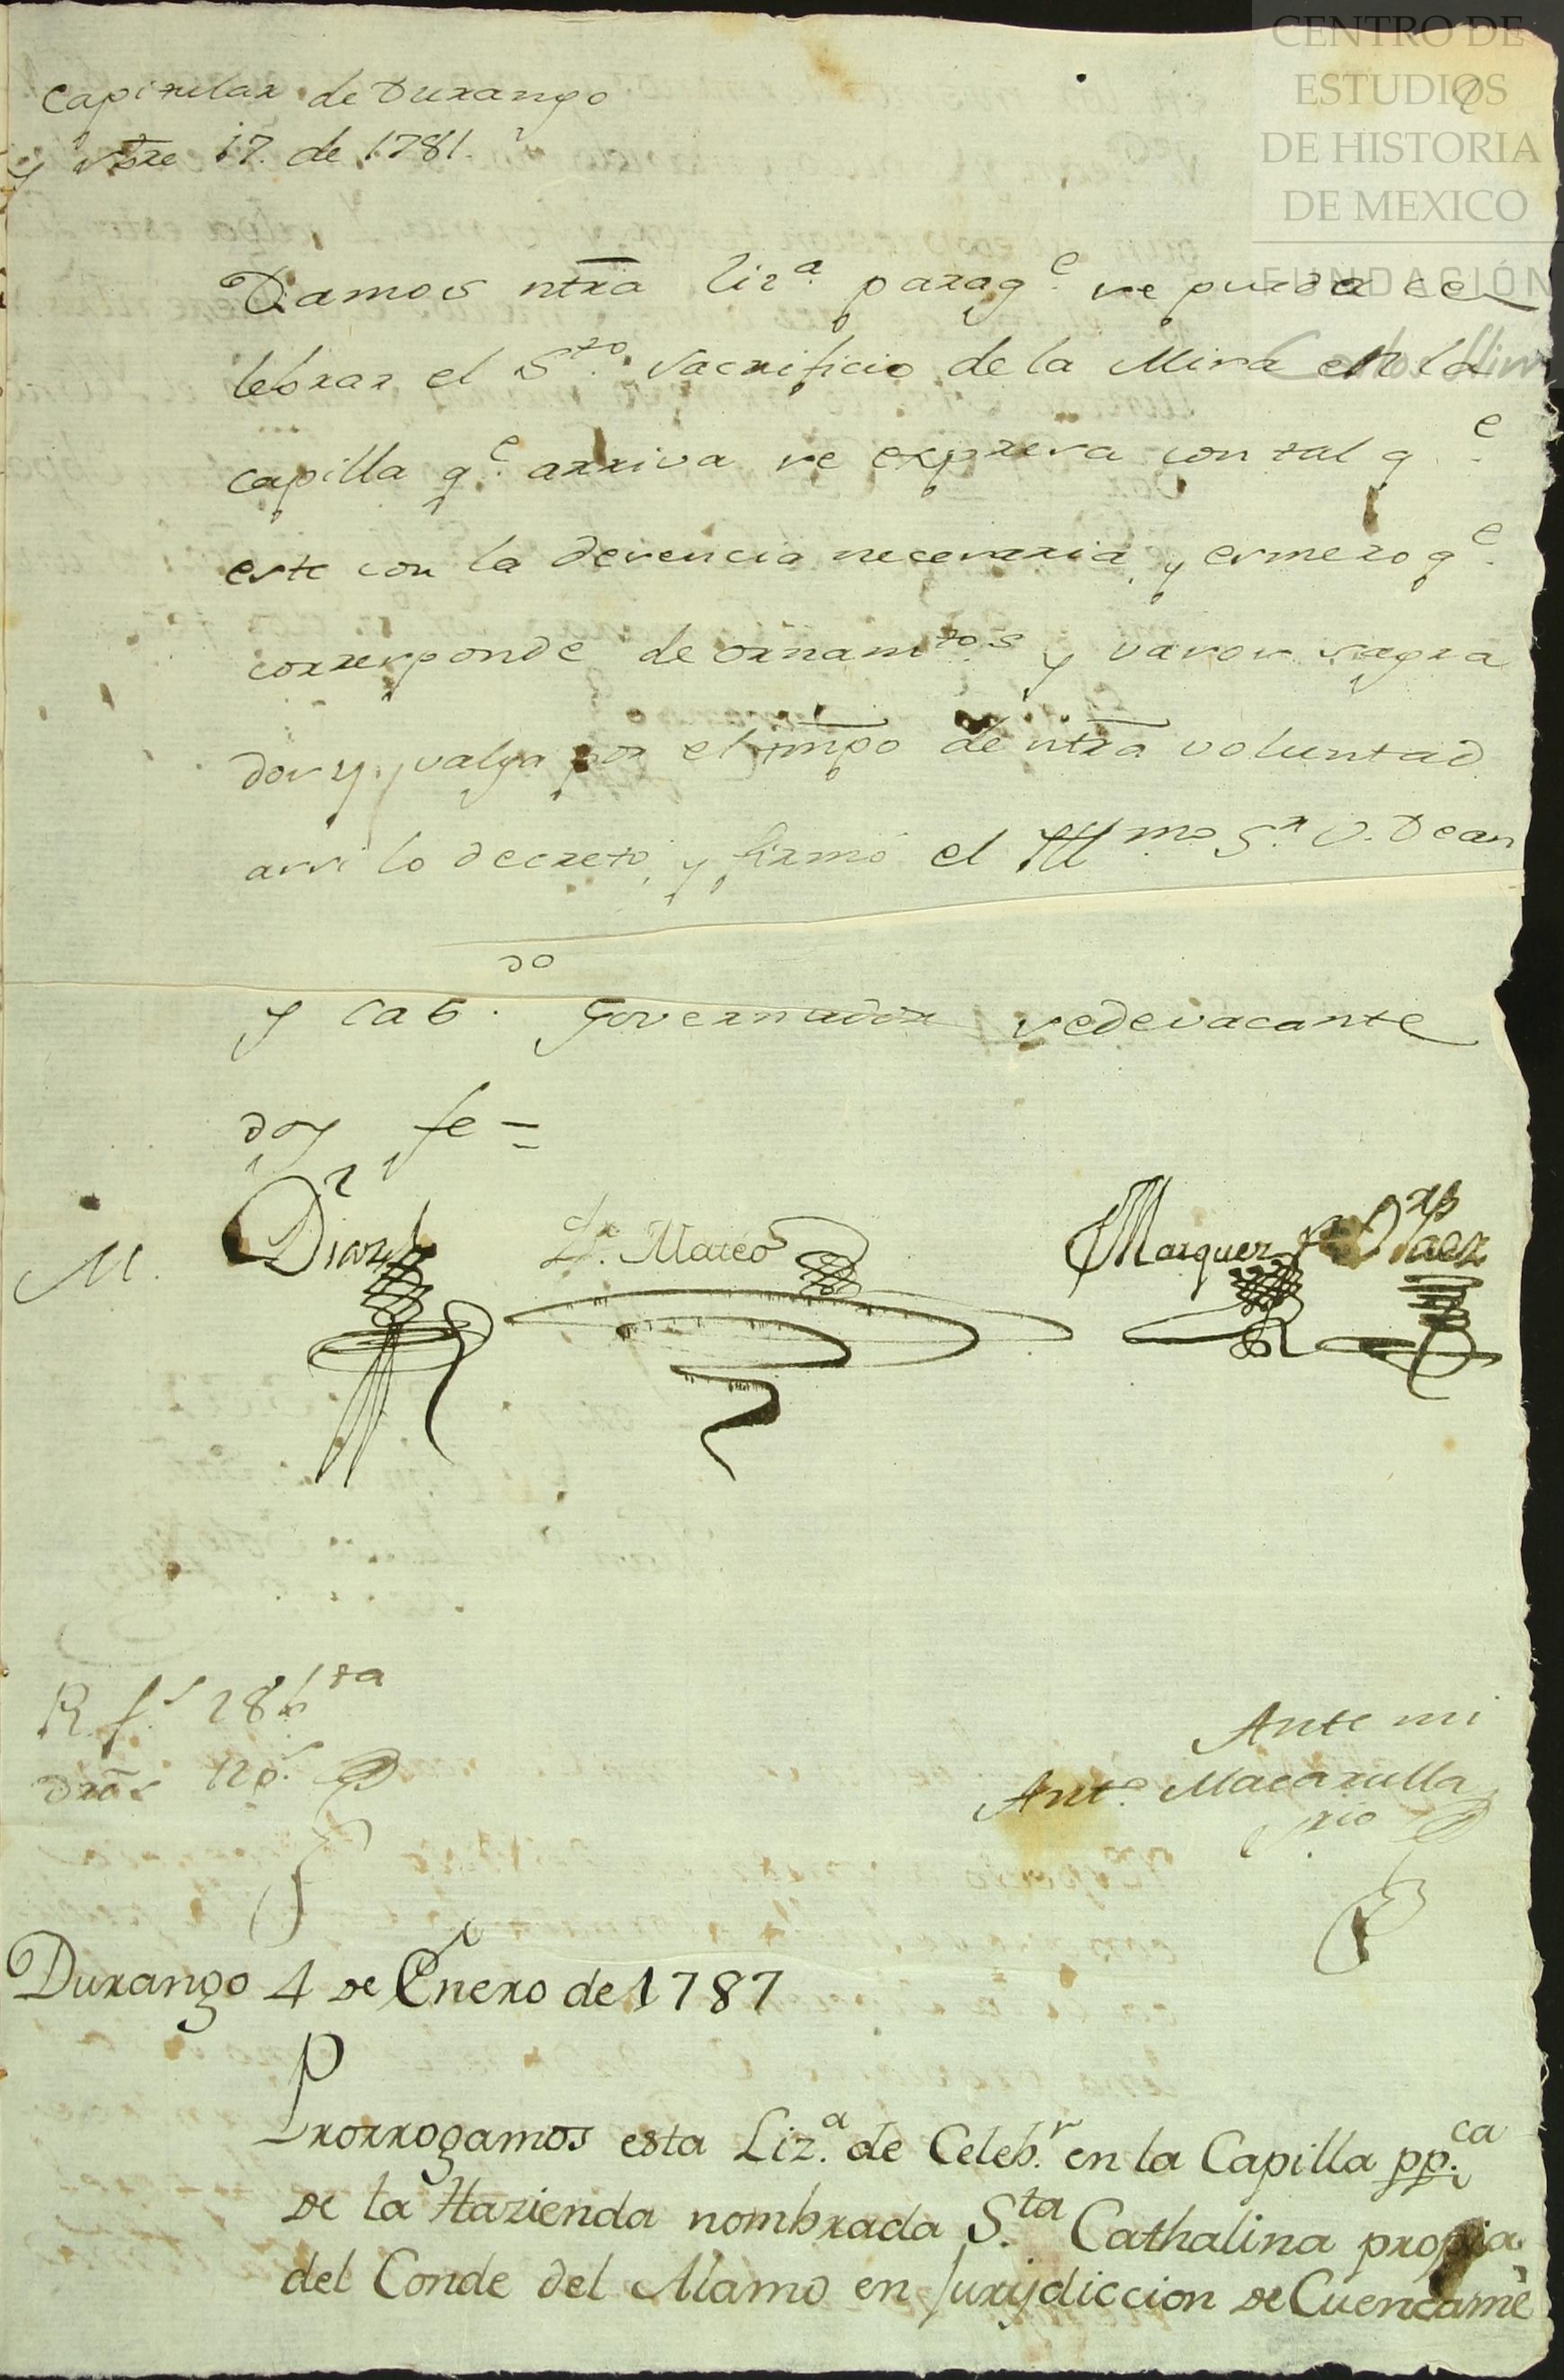 CENTRO DE
ESTUDIOS
DE HISTORIA
DE MEXICO
FUNDACIÓN
Capitular de Durango
y 17. de 1781.
Damos ntrã liz.ª paraq.e se pueda ce
lebrar el S.to sacrificio de la Misa en la
capilla q.e arriva se expresa con tal q.e
este con la desencia necessaria, y esmero q.e
corresponde de ornam.tos y vasos sagra
dos y valga por el tmpõ de ntrã voluntad
assi lo decreto, y firmó el Ill.mo S.r V. Dean
y Cab.do Governador sedevacante
doy fe =
M. D.r Diaz Mateo Marquez Paez
R. f.s 28
dros 12 p.s
Ante mi
Ant.o Macarulla
Srio
Durango 4 de Enero de 1787
Prorrogamos esta Liz.a de Celeb.r en la Capilla pp.ca
de la Hazienda nombrada S.ta Cathalina propia
del Conde del Alamo en Jurisdiccion de Cuencamè